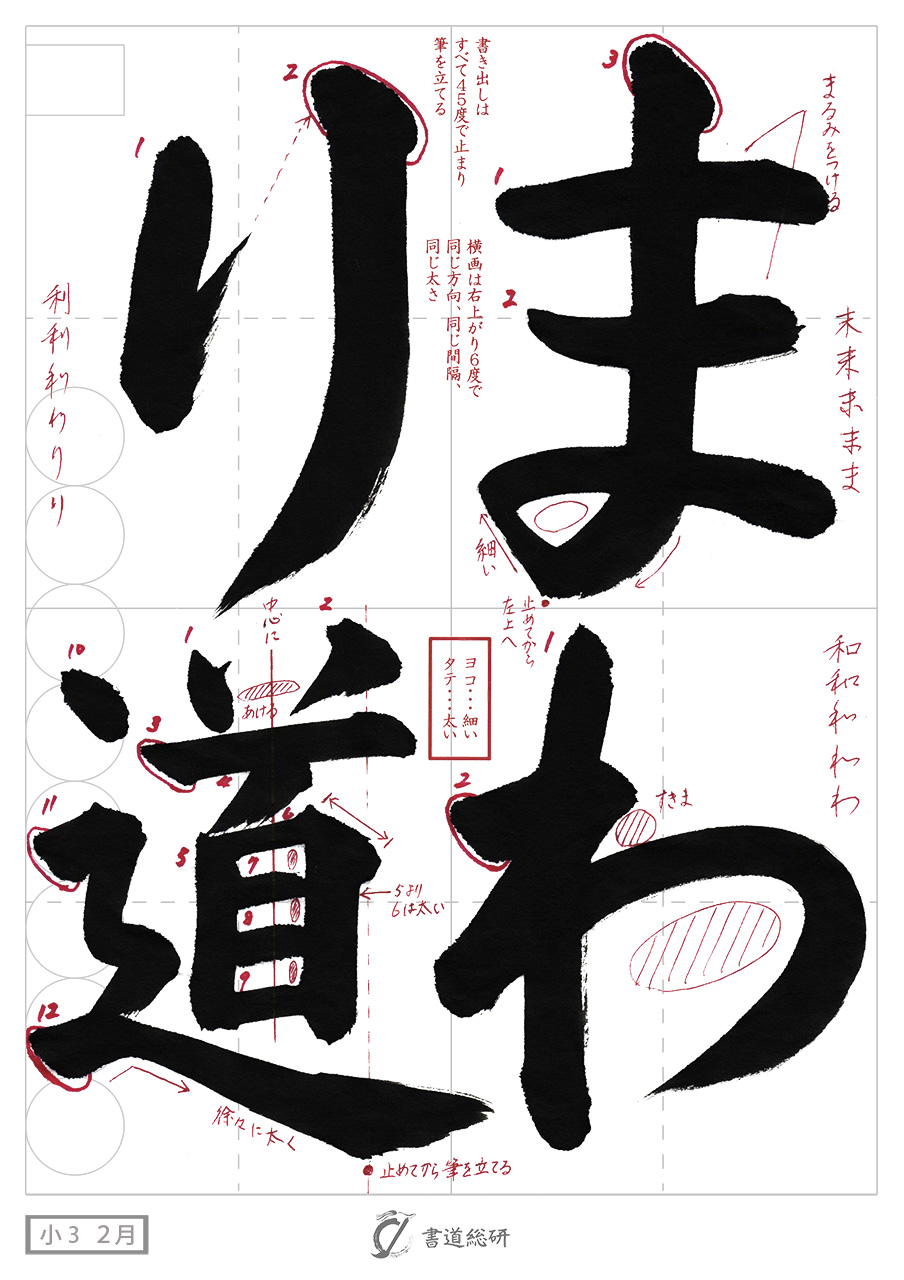 まわ
り道
書き出しは
すべて45度で止まり
筆を立てる
横画は右上がり6度で
同じ方向、同じ間隔、
同じ太さ
まるみをつける
3
1
2
末
未
ま
ま
細い
止めてから
左上へ
和
和
わ
わ
1
2
すきま
ヨコ・・・細い
タテ・・・太い
1
2
利
利
利
わ
り
り
中心に
あける
1
2
3
4
5
6
7
8
9
10
11
12
5より
6は太い
徐々に太く
止めてから筆を立てる
小3 2月
書道総研